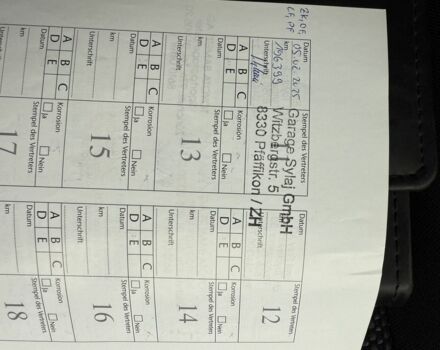 Datum
05.02.2025
Stempel des Vertreters
km
Unterschrift
Garage Sylaj GmbH
Witzbergstr. 5
8330 Pfäffikon / ZH
A B C
D E
Korrosion
Ja
Nein
Datum
Stempel des Vertreters
km
13
Unterschrift
A B C
D E
Korrosion
Ja
Nein
Datum
Stempel des Vertreters
km
15
Unterschrift
A B C
D E
Korrosion
Ja
Nein
Datum
Stempel des Vertreters
km
17
Unterschrift
Datum
Stempel des Vertreters
12
A B C
D E
Korrosion
Ja
Nein
Datum
Stempel des Vertreters
km
14
Unterschrift
A B C
D E
Korrosion
Ja
Nein
Datum
Stempel des Vertreters
km
16
Unterschrift
A B C
D E
Korrosion
Ja
Nein
Datum
Stempel des Vertreters
km
18